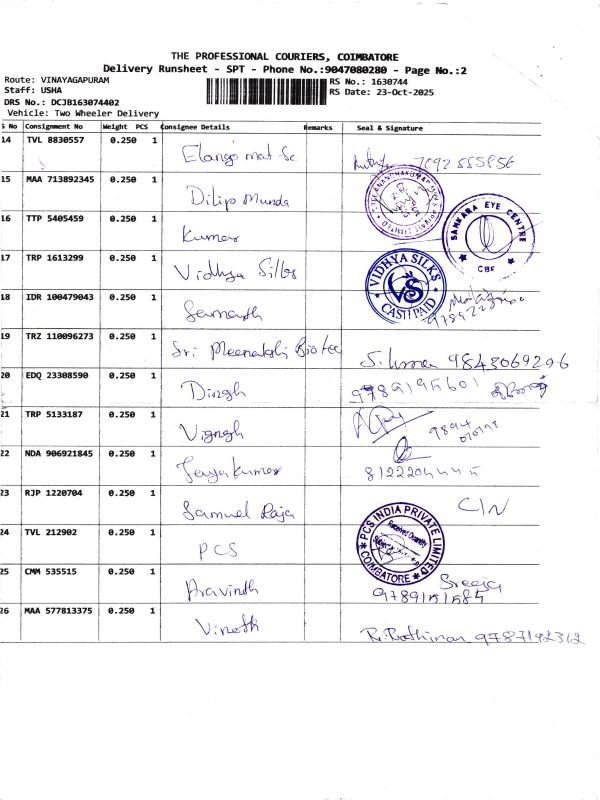 THE PROFESSIONAL COURIERS, COIMBATORE
Delivery Runsheet - SPT - Phone No.:9047080280 - Page No.:2
Route: VINAYAGAPURAM
RS No.: 1630744
Staff: USHA
RS Date: 23-Oct-2025
DRS No.: DCJB163074402
Vehicle: Two Wheeler Delivery
S No Consignment No Weight PCS Consignee Details Remarks Seal & Signature
14 TVL 8830557 0.250 1 Elango mat Sc
15 MAA 713892345 0.250 1 Dilip Munda
16 TTP 5405459 0.250 1 Kumar
SANKARA EYE CENTRE
EYE
CBE
17 TRP 1613299 0.250 1 Vidhya Silks
VIDHYA SILKS
VS
CAST PAID
18 IDR 100479043 0.250 1
19 TRZ 110096273 0.250 1 Sri Meenakshi Biotec 9843069296
20 EDQ 23308590 0.250 1 Dinesh 9789195601
21 TRP 5133187 0.250 1 Vignesh 9894
22 NDA 906921845 0.250 1 Jayakumar
23 RJP 1220704 0.250 1 Samuel Raja
24 TVL 212902 0.250 1 PCS
PCS INDIA PRIVATE LIMITED
Received Quantity
COIMBATORE
25 CMM 535515 0.250 1 Aravinth Sreeja
9789151585
26 MAA 577813375 0.250 1 Vinoth 9787192312